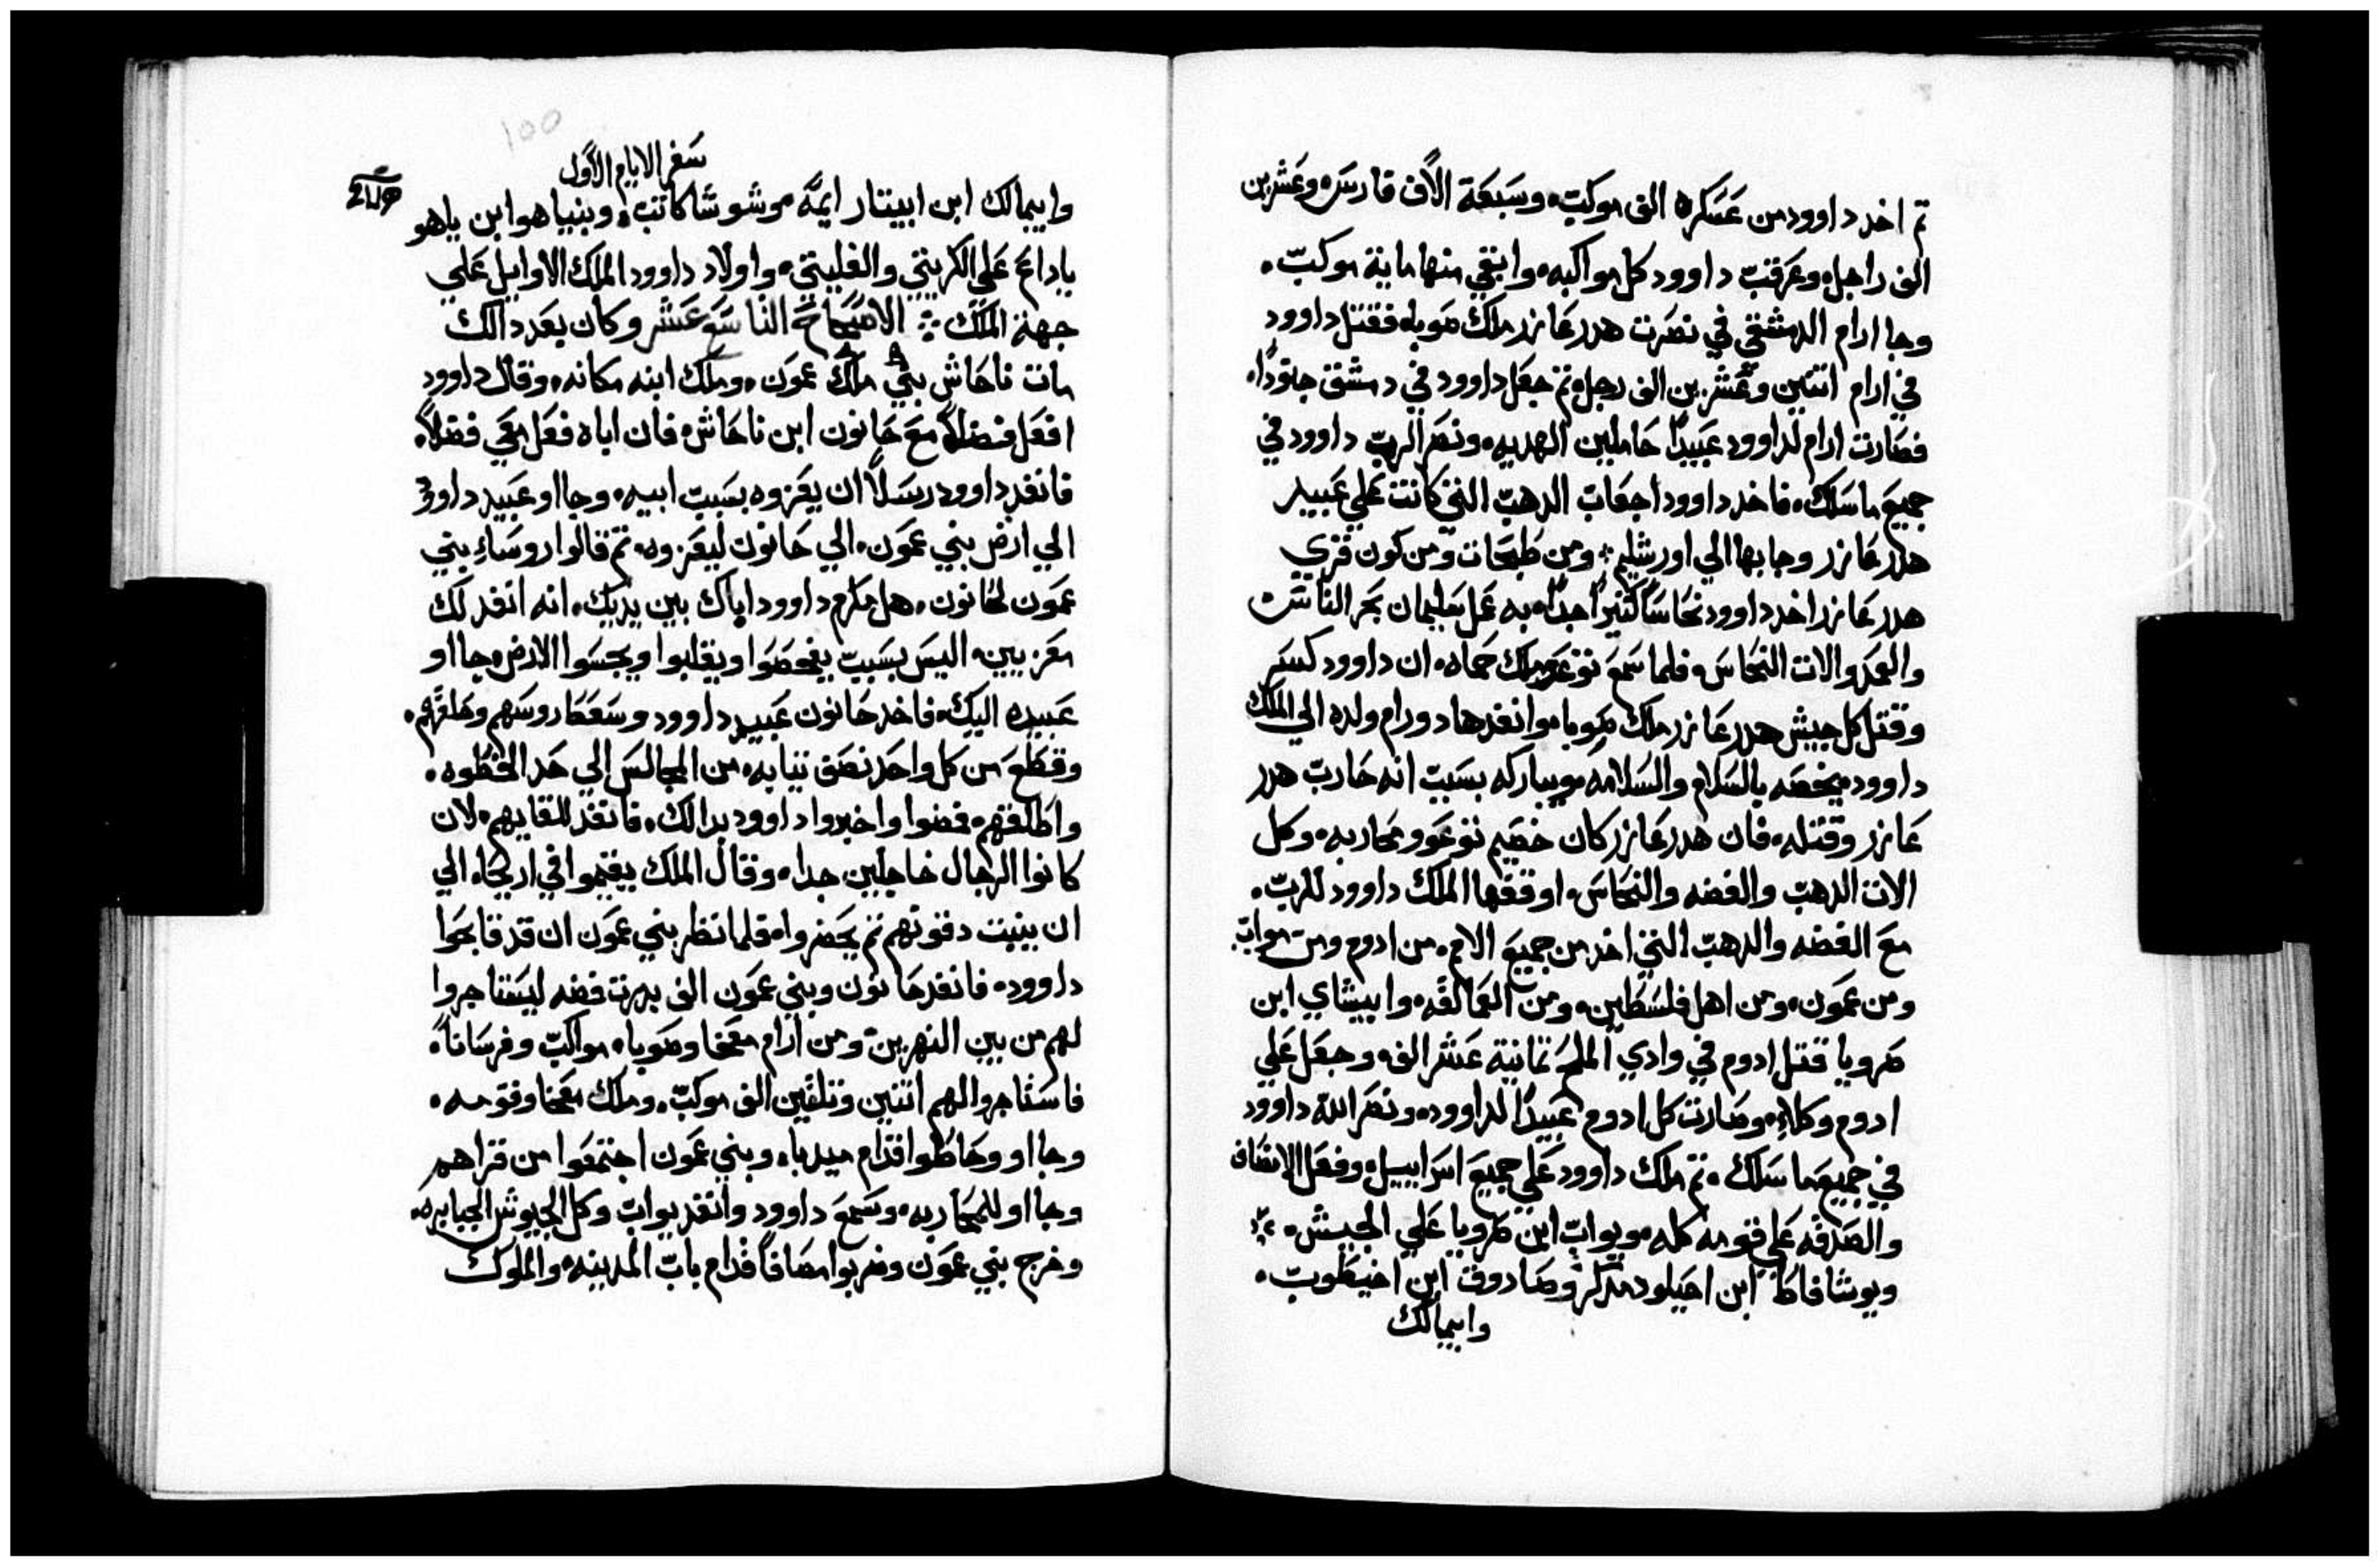 تم اخد داوود من عسكره الف موكب وسبعة الاف فارس وعشرين
الف راجل وعرقب داوود كل مواكبه وابقي منها ماية موكب
وجا ارام الدمشقي في نصرت هدر عازر ملك صوبا فقتل داوود
في ارام اتنين وعشرين الف رجل تم جعل داوود في دمشق جنودا
فصارت ارام لداوود عبيدا حاملين الهديه ونصر الرب داوود في
جميع ما سلك فاخد داوود اجعاب الدهب التي كانت علي عبيد
هدر عازر وجابها الي اورشليم ومن طبحات ومن كون قري
هدر عازر اخد داوود نحاسا كتيرا جدا به عمل سليمان بحر النحاس
والعمد والات النحاس فلما سمع توعو ملك حماه ان داوود كسر
وقتل كل جيش هدر عازر ملك صوبا وانفد هادورام ولده الي الملك
داوود يخصه بالسلام والسلامه ويباركه بسبب انه حارب هدر
عازر وقتله فان هدر عازر كان خصيم توعو ومحاربه وكل
الات الدهب والفضه والنحاس اوقفها الملك داوود للرب
مع الفضه والدهب التي اخد من جميع الامم من ادوم ومن مواب
ومن عمون ومن اهل فلسطين ومن العمالقه وابيشاي ابن
صرويا قتل ادوم في وادي الملح تمانية عشر الف وجعل علي
ادوم وكلاء وصارت كل ادوم عبيدا لداوود ونصر الله داوود
في جميع ما سلك تم ملك داوود علي جميع اسراييل وفعل الانصاف
والصدقه علي قومه كله ويواب ابن صرويا علي الجيش
ويوشافاط ابن احيلود مدكر وصادوق ابن اخيطوب
وابيمالك
100
سفر الايام الاول
وابيمالك ابن ابيتار ايمه موشوشا كاتب وبنياهو ابن ياهو
ياداع علي الكريتي والفليتي واولاد داوود الملك الاوايل علي
جهة الملك الاصحاح التاسع عشر وكان بعد دالك
مات ناحاش بني ملك عمون وملك ابنه مكانه وقال داوود
افعل فضلا مع حانون ابن ناحاش فان اباه فعل معي فضلا
فانفد داوود رسلا ان يعزوه بسبب ابيه وجااو عبيد داوود
الي ارض بني عمون الي حانون ليعزوه تم قالوا روساء بني
عمون لحانون هل مكرم داوود اباك بين يديك انه انفد لك
معزيين اليس بسبب يفحصوا ويقلبوا ويجسوا الارض جااو
عبيده اليك فاخد حانون عبيد داوود وسعط روسهم وحلقهم
وقطع من كل واحد نصف تيابه من المجالس الي حد الخطوه
واطلقهم فمضوا واخبروا داوود بدالك فانفد للقايهم لان
كانوا الرجال خاجلين جدا وقال الملك يقيموا في اريحا الي
ان ينبت دقونهم تم يحضروا فلما نظر بني عمون ان قد قابحوا
داوود فانفد حانون وبني عمون الف بدرت فضه ليستاجروا
لهم من بين النهرين ومن ارام معخا وصوبا مواكب وفرسانا
فاستاجروا لهم اتنين وتلاتين الف موكب وملك معخا وقومه
وجااو وحاطوا قدام ميدبا وبني عمون اجتمعوا من قراهم
وجااو للمحاربه وسمع داوود وانفد يواب وكل الجيوش الجبابره
وخرج بني عمون وضربوا مصافا قدام باب المدينه والملوك